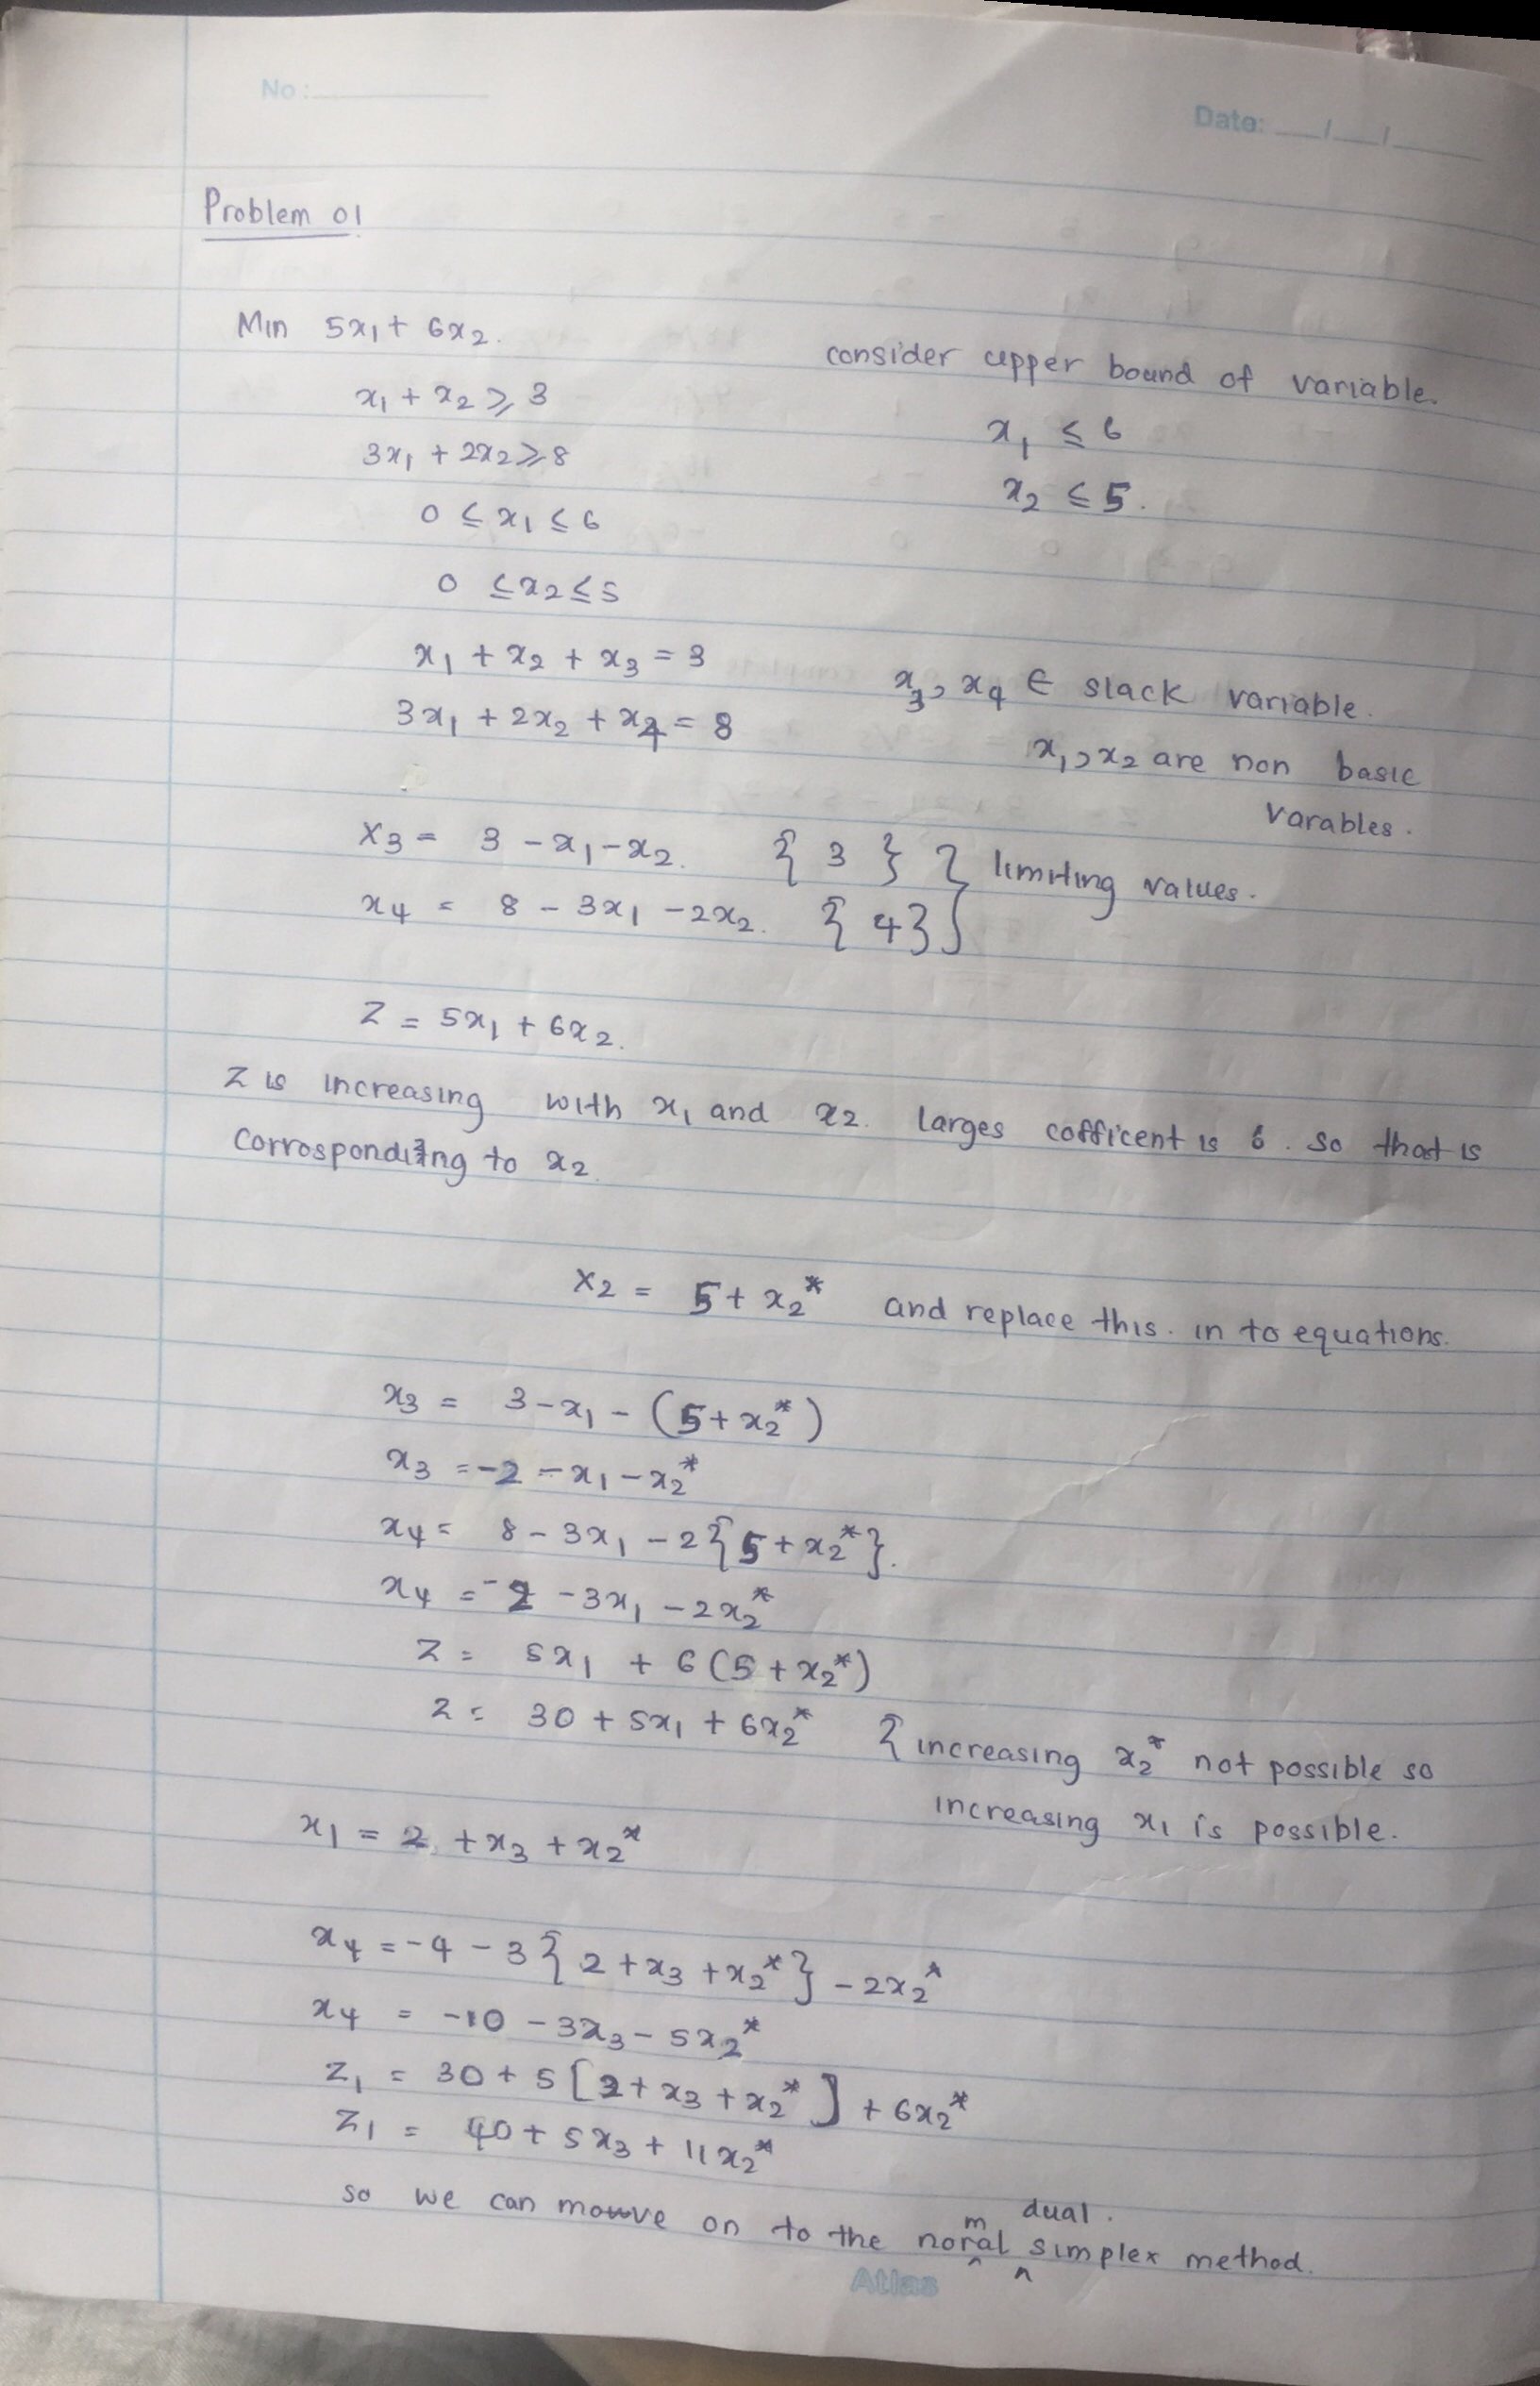 No:
Date: __/__/__
Problem 01
Min 5x₁ + 6x₂.
consider upper bound of variable.
x₁ + x₂ ⩾ 3
x₁ ≤ 6
3x₁ + 2x₂ ⩾ 8
x₂ ≤ 5.
0 ≤ x₁ ≤ 6
0 ≤ x₂ ≤ 5
x₁ + x₂ + x₃ = 3
x₃, x₄ ∈ slack variable.
3x₁ + 2x₂ + x₄ = 8
x₁, x₂ are non basic
varables.
x₃ = 3 - x₁ - x₂. { 3 } } limiting values.
x₄ = 8 - 3x₁ - 2x₂. { 4 } }
Z = 5x₁ + 6x₂.
Z is increasing with x₁ and x₂. larges cofficent is 6. so that is
corrosponding to x₂.
x₂ = 5 + x₂* and replace this. in to equations.
x₃ = 3 - x₁ - (5 + x₂*)
x₃ = -2 - x₁ - x₂*
x₄ = 8 - 3x₁ - 2{5 + x₂*}.
x₄ = -2 - 3x₁ - 2x₂*
Z = 5x₁ + 6(5 + x₂*)
Z = 30 + 5x₁ + 6x₂* { increasing x₂* not possible so
increasing x₁ is possible.
x₁ = 2 + x₃ + x₂*
x₄ = -4 - 3{2 + x₃ + x₂*} - 2x₂*
x₄ = -10 - 3x₃ - 5x₂*
Z₁ = 30 + 5[2 + x₃ + x₂*] + 6x₂*
Z₁ = 40 + 5x₃ + 11x₂*
so we can mouve on to the normal dual. simplex method.
Atlas